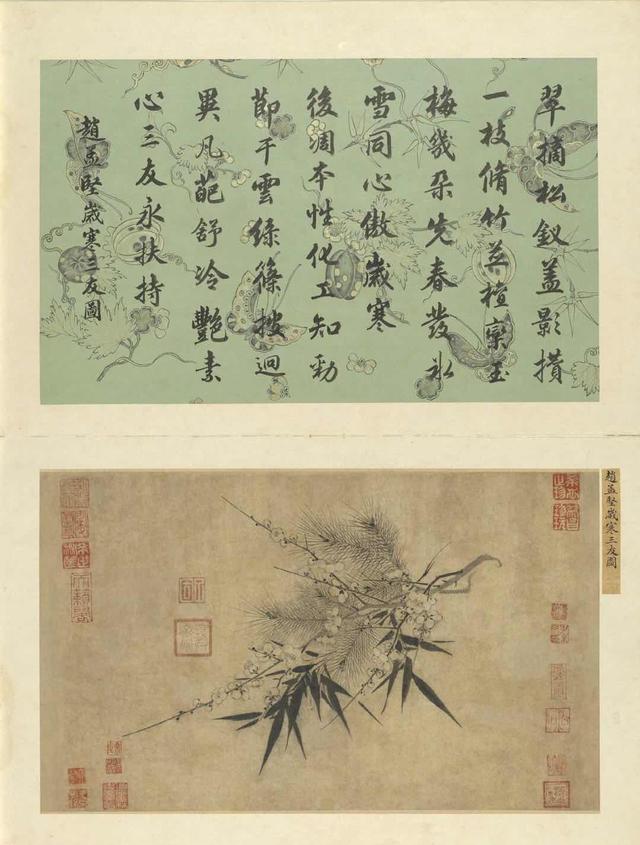 翠摘松釵蓋影攢
一枝脩竹並檀欒玉
梅幾朵先春發氷
雪同心傲歲寒
後凋本性化工知勁
節干雲綠篠披迥
異凡葩舒冷艷素
心三友永扶持
趙孟堅歲寒三友圖
趙孟堅歲寒三友圖